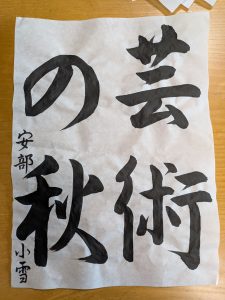 芸術
の秋
安部 小雪